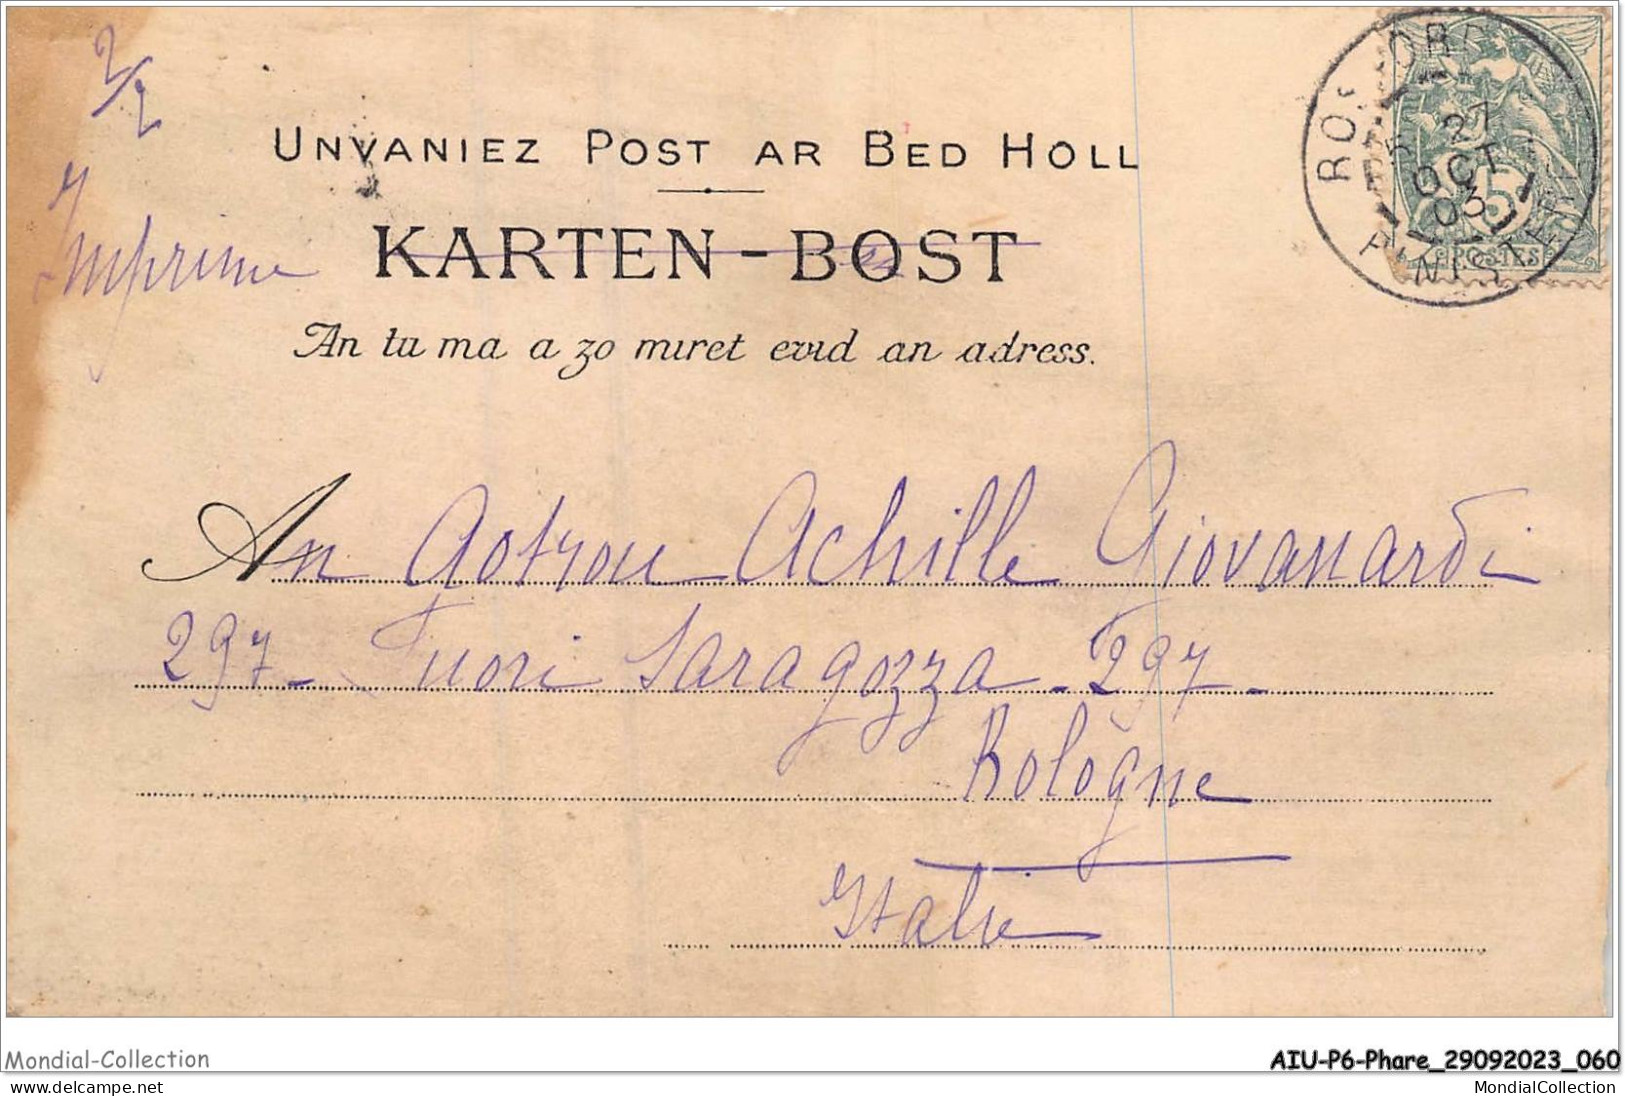 2/2
Imprimé
UNVANIEZ POST AR BED HOLL
KARTEN-BOST
An tu ma a zo miret evid an adress.
An Aotrou Achille Giovanardi
297 - Fuori Saragozza - 297 -
Bologne
Italie
ROSPORDEN
27
OCT
03
FINISTERE
5
POSTES
Mondial-Collection
AIU-P6-Phare_29092023_060
www.delcampe.net
MondialCollection